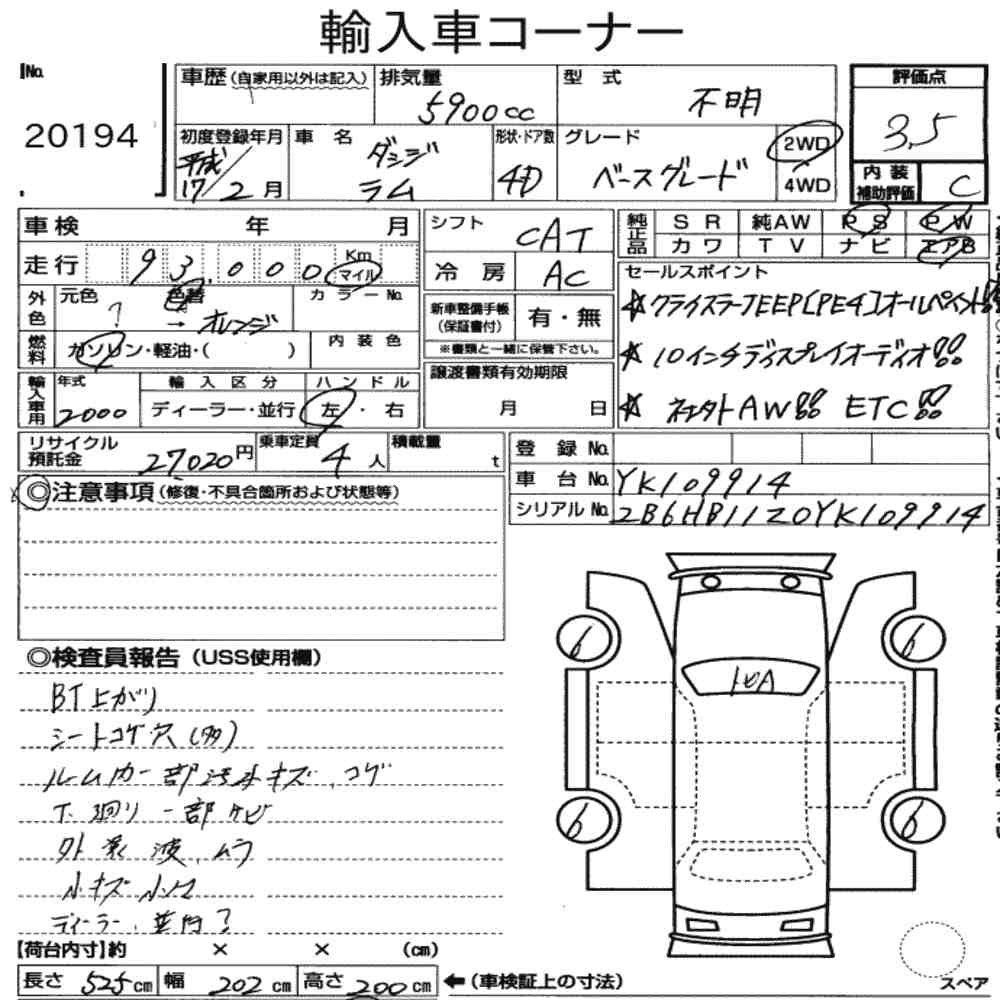 輸入車コーナー
No. 20194
車歴 (自家用以外は記入) 排気量 5900cc 型式 不明
評価点 3.5
初度登録年月 平成17/2月 車名 ダッジ ラム 形状・ドア数 4D グレード ベースグレード 2WD 4WD
内装補助評価 C
車検 年 月
走行 93,000 Km マイル
外色 元色 ? 色替 → オレンジ カラーNo.
燃料 ガソリン・軽油・( ) 内装色
輸入車用 年式 2000 輸入区分 ディーラー・並行 ハンドル 左・右
シフト CAT
冷房 AC
新車整備手帳 (保証書付) 有・無
※書類と一緒に保管下さい。
譲渡書類有効期限
月 日
純正品 SR 純AW PS PW
カワ TV ナビ エアB
セールスポイント
☆クライスラーJEEP[PE4]オールペイント!!
☆10インチディスプレイオーディオ!!
☆ AW!! ETC!!
リサイクル預託金 27020円 乗車定員 4人 積載量 t
登録No.
車台No. YK109914
シリアルNo. 2B6HB11Z0YK109914
◎注意事項 (修復・不具合箇所および状態等)
◎検査員報告 (USS使用欄)
BT上がり
シートコゲ穴(多)
ルームカー部汚れキズ、コゲ
下廻り一部サビ
外装 波、ムラ
小キズ 小凹
ディーラー、並行?
6 6
10A
6 6
【荷台内寸】約 × × (cm)
長さ 525cm 幅 202cm 高さ 200cm ←(車検証上の寸法)
スペア